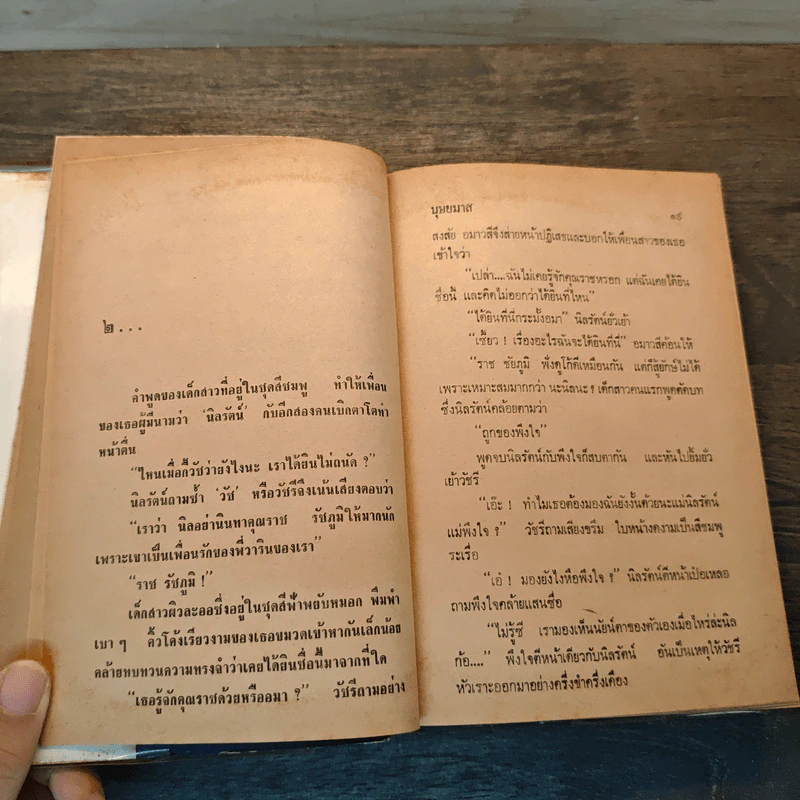 ๒...
คำพูดของเด็กสาวที่อยู่ในชุดสีชมพู ทำให้เพื่อน
ของเธอผู้มีนามว่า ‘นิลรัตน์’ กับอีกสองคนเบิกตาโตทำ
หน้าตื่น
“ไหนเมื่อกี้วัชว่ายังไงนะ เราได้ยินไม่ถนัด ?”
นิลรัตน์ถามซ้ำ ‘วัช’ หรือวัชรีจึงเน้นเสียงตอบว่า
“เราว่า นิลอย่านินทาคุณราช รัชภูมิให้มากนัก
เพราะเขาเป็นเพื่อนรักของพี่วารินของเรา”
“ราช รัชภูมิ !”
เด็กสาวผิวละออซึ่งอยู่ในชุดสีฟ้าพยับหมอก พึมพำ
เบา ๆ คิ้วโค้งเรียวงามของเธอขมวดเข้าหากันเล็กน้อย
คล้ายทบทวนความทรงจำว่าเคยได้ยินชื่อนี้มาจากที่ใด
“เธอรู้จักคุณราชด้วยหรืออมา ?” วัชรีถามอย่าง
บุษยมาส ๑๙
สงสัย อมาวสีจึงส่ายหน้าปฏิเสธและบอกให้เพื่อนสาวของเธอ
เข้าใจว่า
“เปล่า....ฉันไม่เคยรู้จักคุณราชหรอก แต่ฉันเคยได้ยิน
ชื่อนี้ และคิดไม่ออกว่าได้ยินที่ไหน”
“ได้ยินที่นี่กระมั้งอมา” นิลรัตน์ยั่วเย้า
“เชี้ยว ! เรื่องอะไรฉันจะได้ยินที่นี่” อมาวสีค้อนให้
“ราช ชัยภูมิ ฟังดูโก้ดีเหมือนกัน แต่ก็สู้ยักษ์ไม่ได้
เพราะเหมาะสมมากกว่า นะนิลนะ? เด็กสาวคนแรกพูดตัดบท
ซึ่งนิลรัตน์คล้อยตามว่า
“ถูกของพึงใจ”
พูดจบนิลรัตน์กับพึงใจก็สบตากัน และหันไปยิ้มยั่ว
เย้าวัชรี
“เอ๊ะ ! ทำไมเธอต้องมองฉันยังงั้นด้วยนะแม่นิลรัตน์
แม่พึงใจ ?” วัชรีถามเสียงขรึม ใบหน้างดงามเป็นสีชมพู
ระเรื่อ
“เอ๋ ! มองยังไงหือพึงใจ ?” นิลรัตน์ตีหน้าเป๋อเหลอ
ถามพึงใจคล้ายแสนซื่อ
“ไม่รู้ซี เรามองเห็นนัยน์ตาของตัวเองเมื่อไหร่ล่ะนิล
ก้อ....” พึงใจตีหน้าเดียวกับนิลรัตน์ อันเป็นเหตุให้วัชรี
หัวเราะออกมาอย่างครึ่งขำครึ่งเคือง